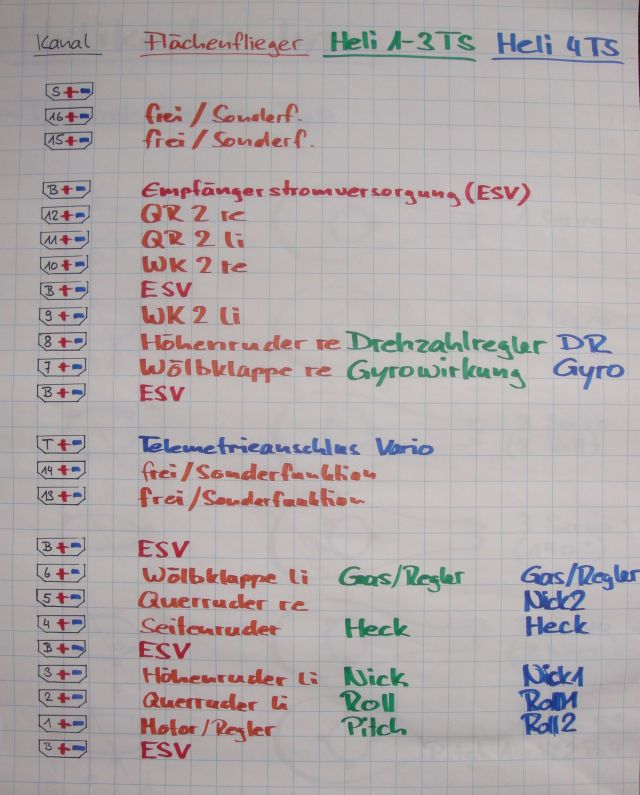 Kanal Flächenflieger Heli 1-3TS Heli 4TS
S + -
16 + - frei/Sonderf.
15 + - frei/Sonderf.
B + - Empfängerstromversorgung (ESV)
12 + - QR 2 re
11 + - QR 2 li
10 + - WK 2 re
B + - ESV
9 + - WK 2 li
8 + - Höhenruder re Drehzahlregler DR
7 + - Wölbklappe re Gyrowirkung Gyro
B + - ESV
T + - Telemetrieanschlus Vario
14 + - frei/Sonderfunktion
13 + - frei/Sonderfunktion
B + - ESV
6 + - Wölbklappe li Gas/Regler Gas/Regler
5 + - Querruder re Nick2
4 + - Seitenruder Heck Heck
B + - ESV
3 + - Höhenruder li Nick Nick1
2 + - Querruder li Roll Roll1
1 + - Motor/Regler Pitch Roll2
B + - ESV